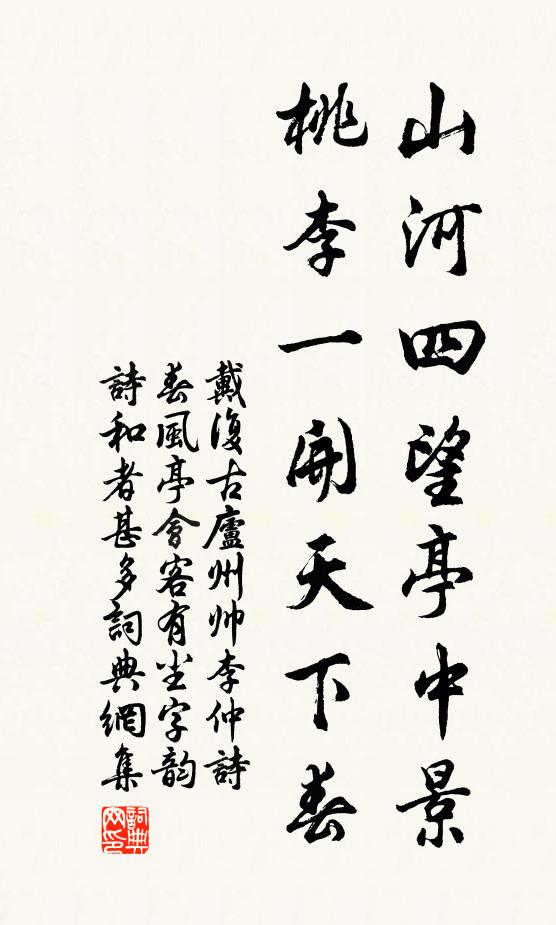 山河四望亭中景
桃李一開天下春
戴復古廬州帅李仲詩
春風亭會客有尘字韵
詩和者甚多詞典網集
詞典网印